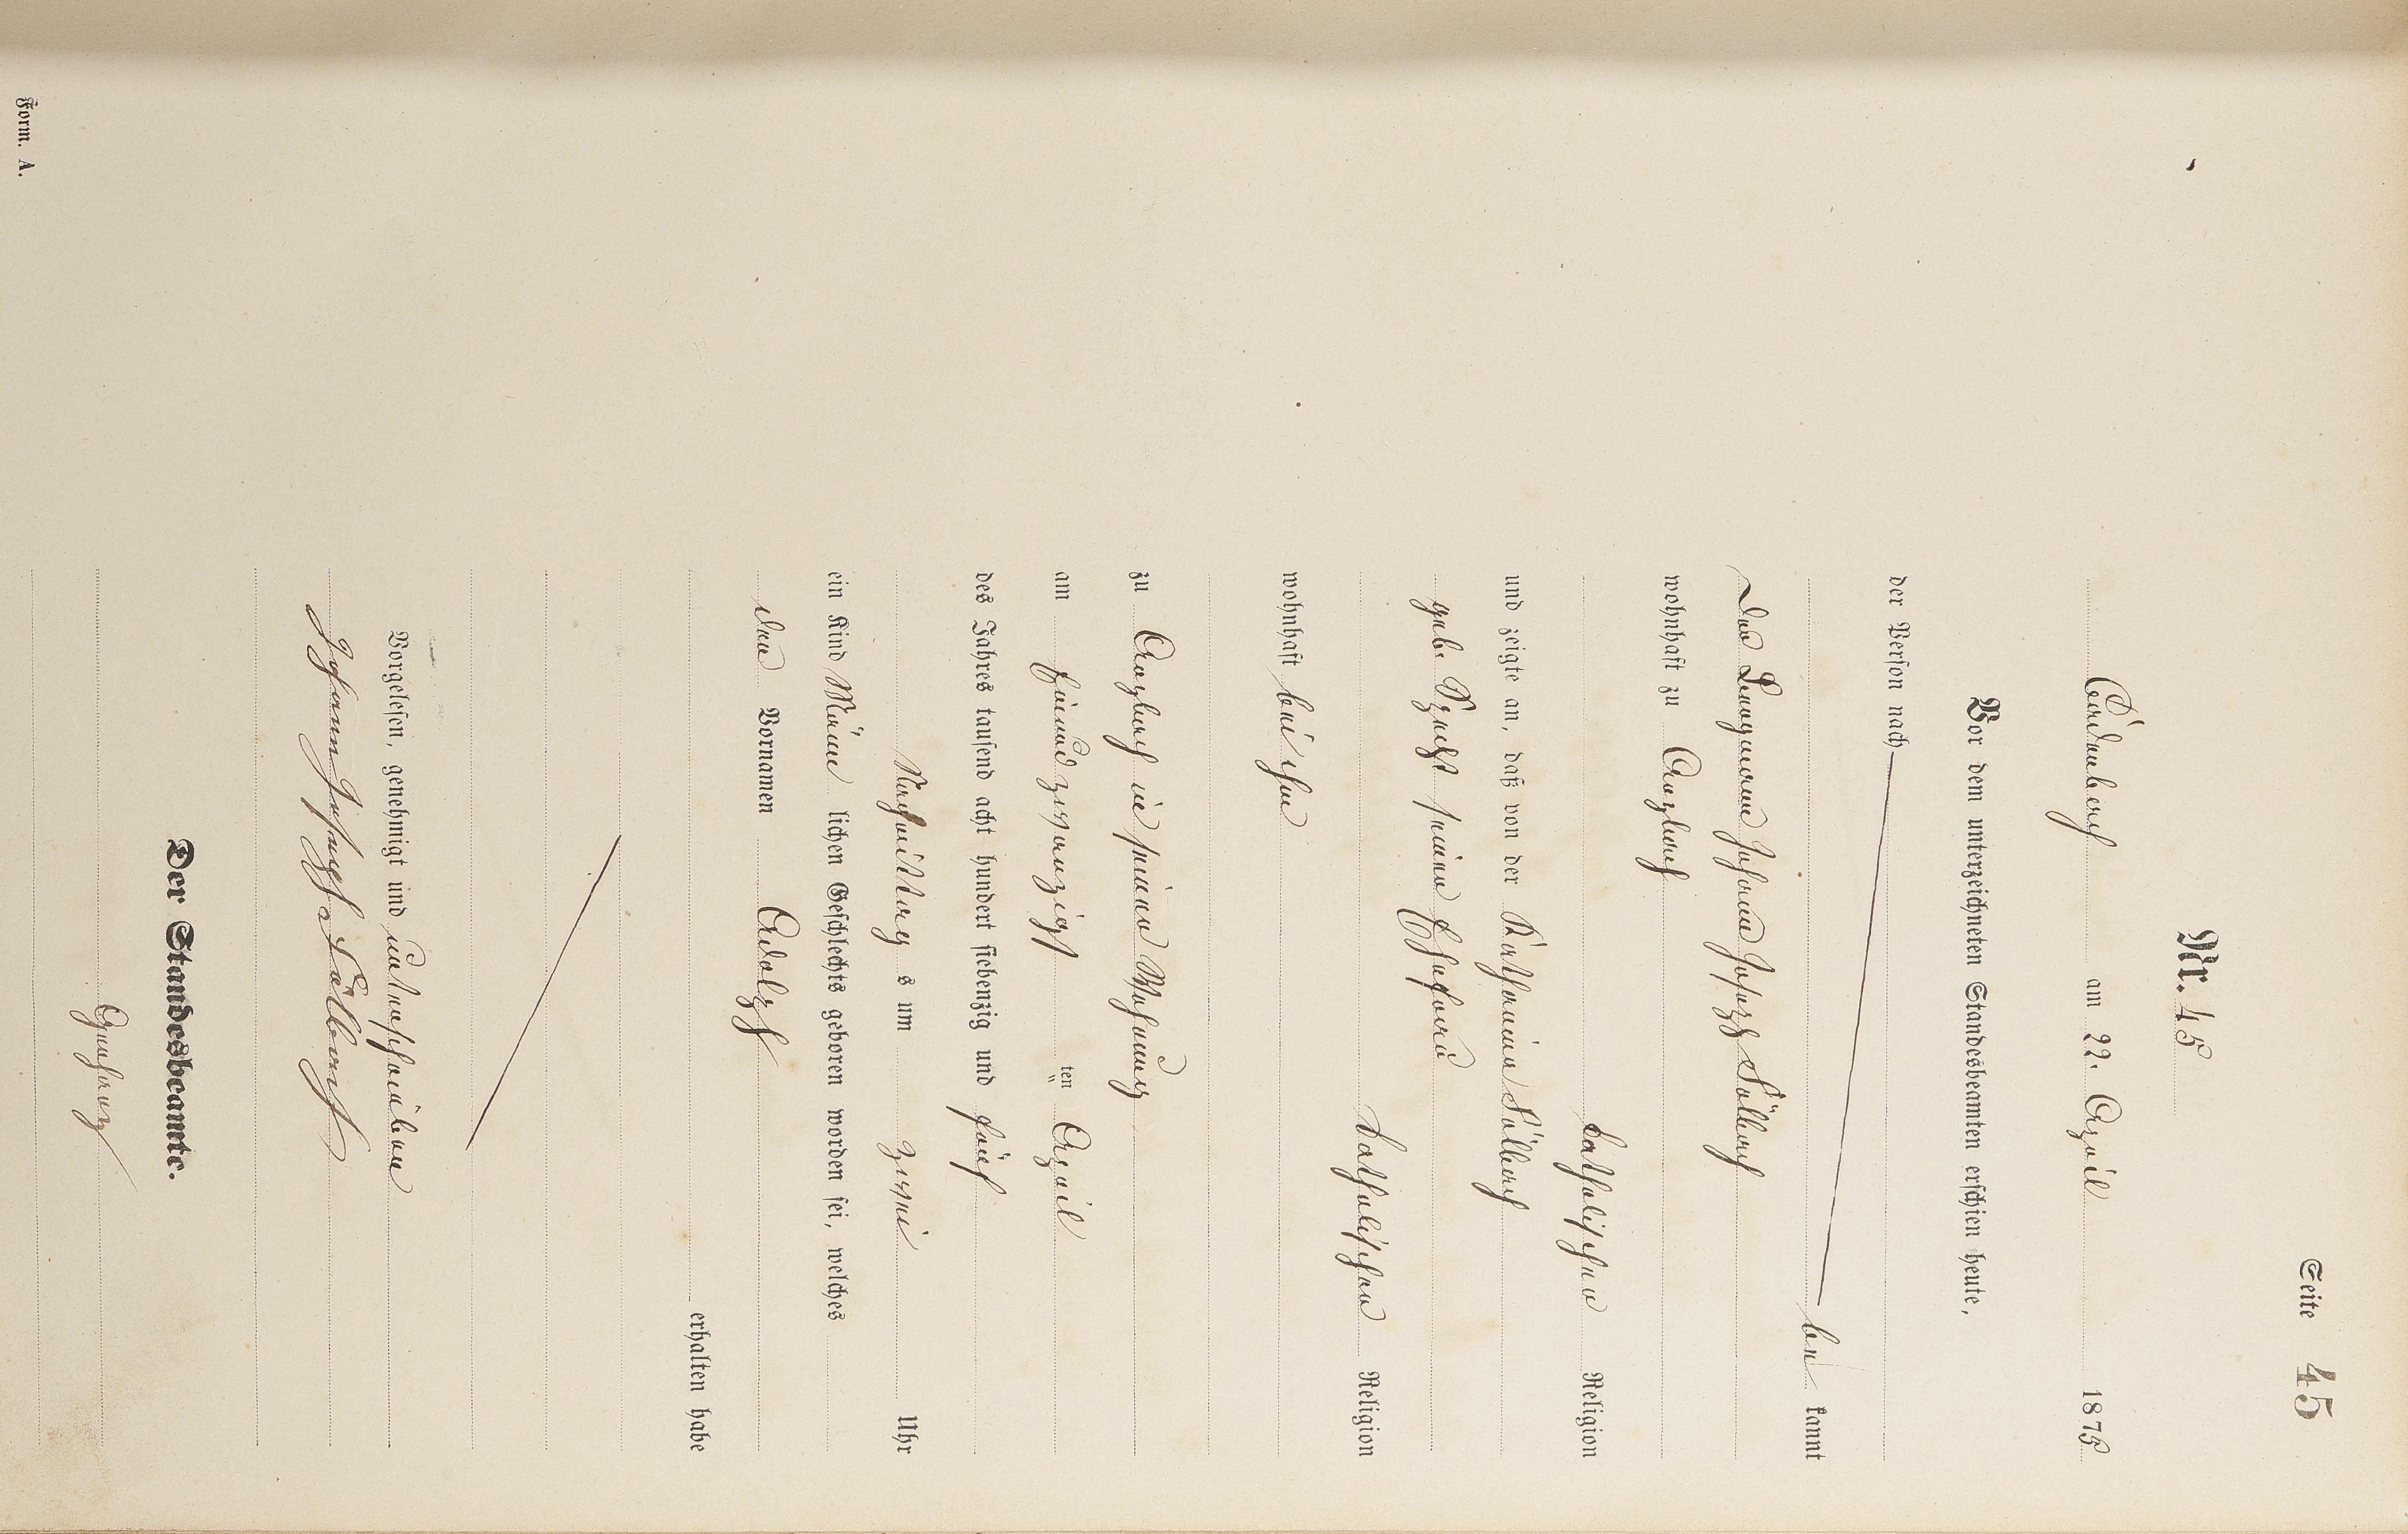 Seite 45
Nr. 45
Cadenbach am 22. April 1875
Vor dem unterzeichneten Standesbeamten erschien heute,
der Person nach
be kannt
der Bergmann Johann Joseph Fölbach
wohnhaft zu Arzbach
katholischer Religion
und zeigte an, daß von der Katharina Fölbach
geb. Specht seiner Ehefrau
katholischer Religion
wohnhaft bei ihm
zu Arzbach in seiner Wohnung
am einundzwanzigst ten April
des Jahres tausend acht hundert siebenzig und fünf
Nachmittag s um zwei Uhr
ein Kind Männ lichen Geschlechts geboren worden sei, welches
den Vornamen Adolph
erhalten habe
Vorgelesen, genehmigt und unterschrieben
Johann Joseph Fölbach
Der Standesbeamte.
Form. A.